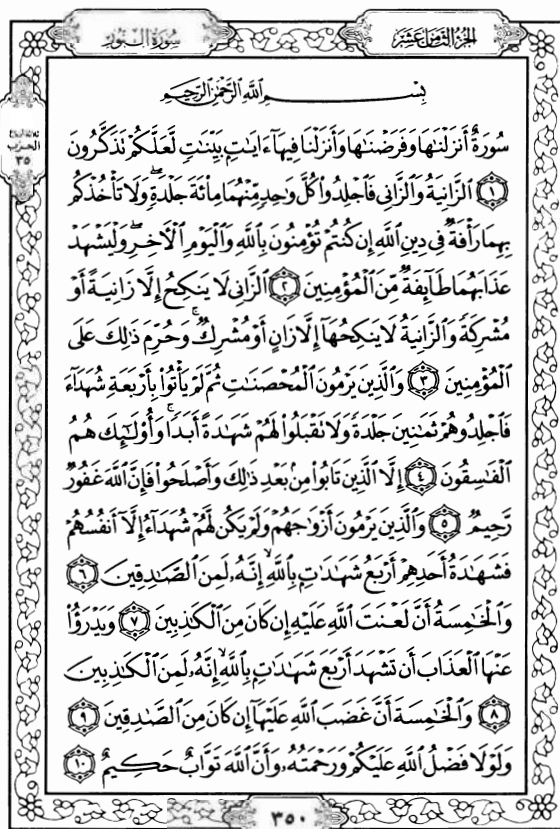 الجزء الثامن عشر
سورة النور
ثلاثة أرباع
الحزب
٣٥
بِسْمِ اللَّهِ الرَّحْمَٰنِ الرَّحِيمِ
سُورَةٌ أَنزَلْنَاهَا وَفَرَضْنَاهَا وَأَنزَلْنَا فِيهَا ءَايَاتٍ بَيِّنَاتٍ لَّعَلَّكُمْ تَذَكَّرُونَ
﴿١﴾ الزَّانِيَةُ وَالزَّانِي فَاجْلِدُوا كُلَّ وَاحِدٍ مِّنْهُمَا مِائَةَ جَلْدَةٍ ۖ وَلَا تَأْخُذْكُم
بِهِمَا رَأْفَةٌ فِي دِينِ اللَّهِ إِن كُنتُمْ تُؤْمِنُونَ بِاللَّهِ وَالْيَوْمِ الْآخِرِ ۖ وَلْيَشْهَدْ
عَذَابَهُمَا طَائِفَةٌ مِّنَ الْمُؤْمِنِينَ ﴿٢﴾ الزَّانِي لَا يَنكِحُ إِلَّا زَانِيَةً أَوْ
مُشْرِكَةً وَالزَّانِيَةُ لَا يَنكِحُهَا إِلَّا زَانٍ أَوْ مُشْرِكٌ ۚ وَحُرِّمَ ذَٰلِكَ عَلَى
الْمُؤْمِنِينَ ﴿٣﴾ وَالَّذِينَ يَرْمُونَ الْمُحْصَنَاتِ ثُمَّ لَمْ يَأْتُوا بِأَرْبَعَةِ شُهَدَاءَ
فَاجْلِدُوهُمْ ثَمَانِينَ جَلْدَةً وَلَا تَقْبَلُوا لَهُمْ شَهَادَةً أَبَدًا ۚ وَأُولَٰئِكَ هُمُ
الْفَاسِقُونَ ﴿٤﴾ إِلَّا الَّذِينَ تَابُوا مِن بَعْدِ ذَٰلِكَ وَأَصْلَحُوا فَإِنَّ اللَّهَ غَفُورٌ
رَّحِيمٌ ﴿٥﴾ وَالَّذِينَ يَرْمُونَ أَزْوَاجَهُمْ وَلَمْ يَكُن لَّهُمْ شُهَدَاءُ إِلَّا أَنفُسُهُمْ
فَشَهَادَةُ أَحَدِهِمْ أَرْبَعُ شَهَادَاتٍ بِاللَّهِ ۙ إِنَّهُ لَمِنَ الصَّادِقِينَ ﴿٦﴾
وَالْخَامِسَةُ أَنَّ لَعْنَتَ اللَّهِ عَلَيْهِ إِن كَانَ مِنَ الْكَاذِبِينَ ﴿٧﴾ وَيَدْرَؤُا
عَنْهَا الْعَذَابَ أَن تَشْهَدَ أَرْبَعَ شَهَادَاتٍ بِاللَّهِ ۙ إِنَّهُ لَمِنَ الْكَاذِبِينَ
﴿٨﴾ وَالْخَامِسَةَ أَنَّ غَضَبَ اللَّهِ عَلَيْهَا إِن كَانَ مِنَ الصَّادِقِينَ ﴿٩﴾
وَلَوْلَا فَضْلُ اللَّهِ عَلَيْكُمْ وَرَحْمَتُهُ وَأَنَّ اللَّهَ تَوَّابٌ حَكِيمٌ ﴿١٠﴾
٣٥٠